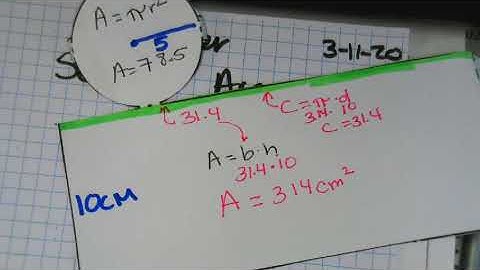 A=πr²
5
A=78.5
3-11-20
31.4
C=π·d
3.14·10
C=31.4
A=b·h
31.4·10
A=314cm²
10cm